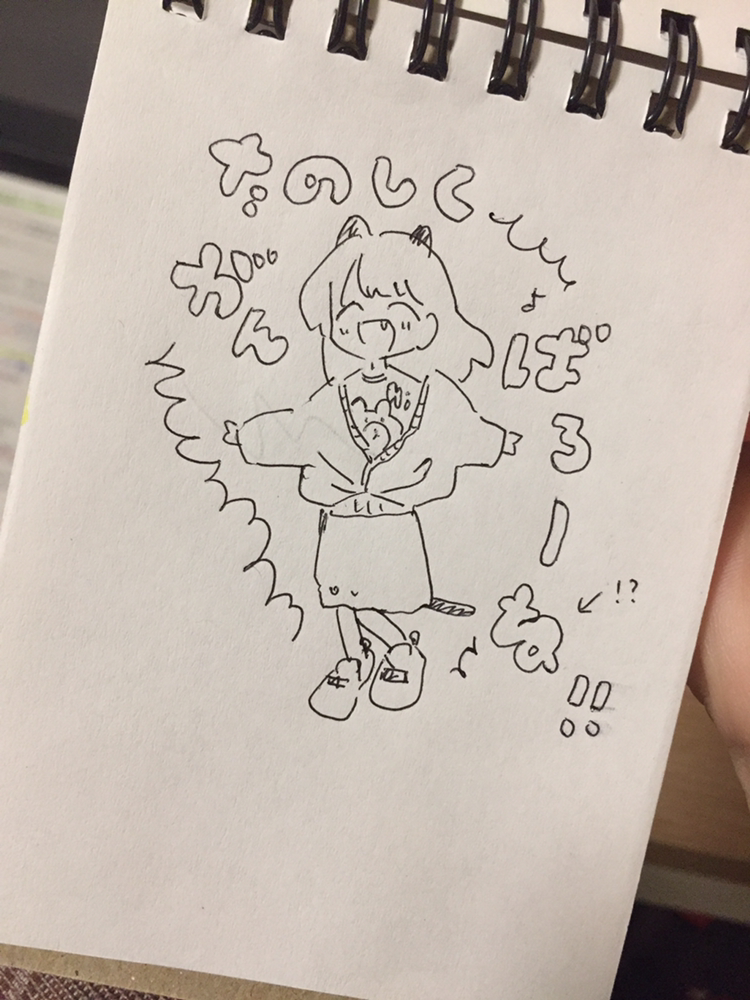 たのしく
がんばろーね
!!
!?